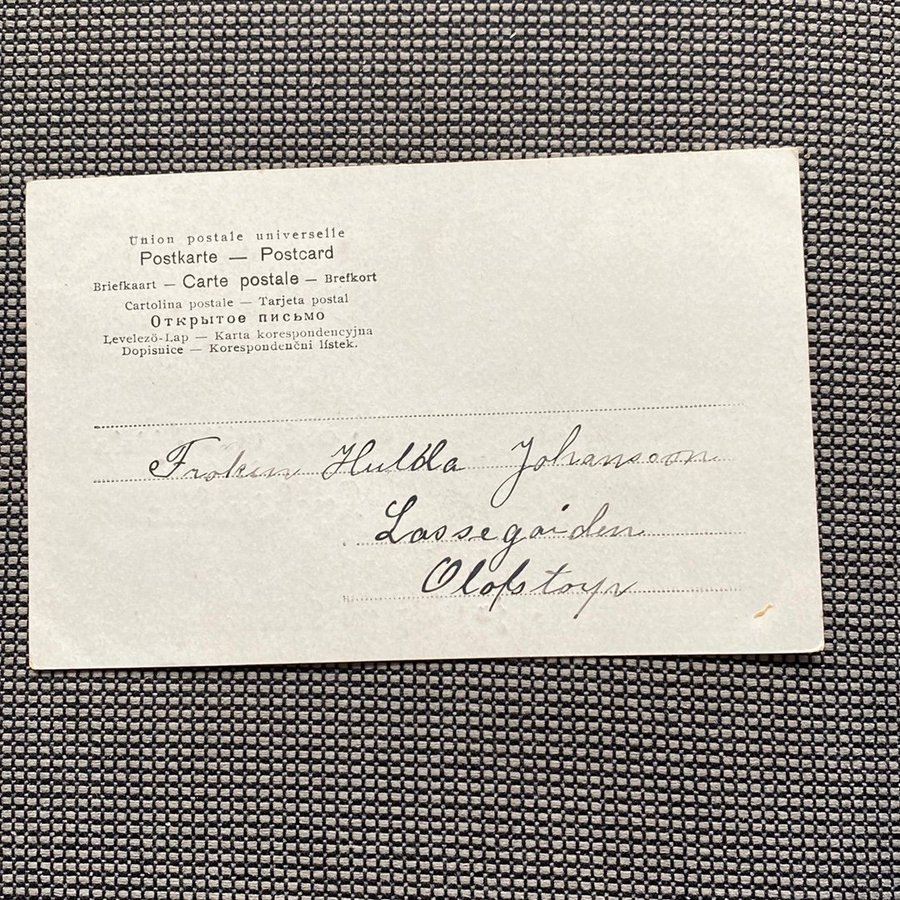 Union postale universelle
Postkarte — Postcard
Briefkaart — Carte postale — Brefkort
Cartolina postale — Tarjeta postal
Открытое письмо
Levelező-Lap — Karta korespondencyjna
Dopisnice — Korespondenčni lístek.
Froken Hulda Johansson
Lassegården
Olofstorp